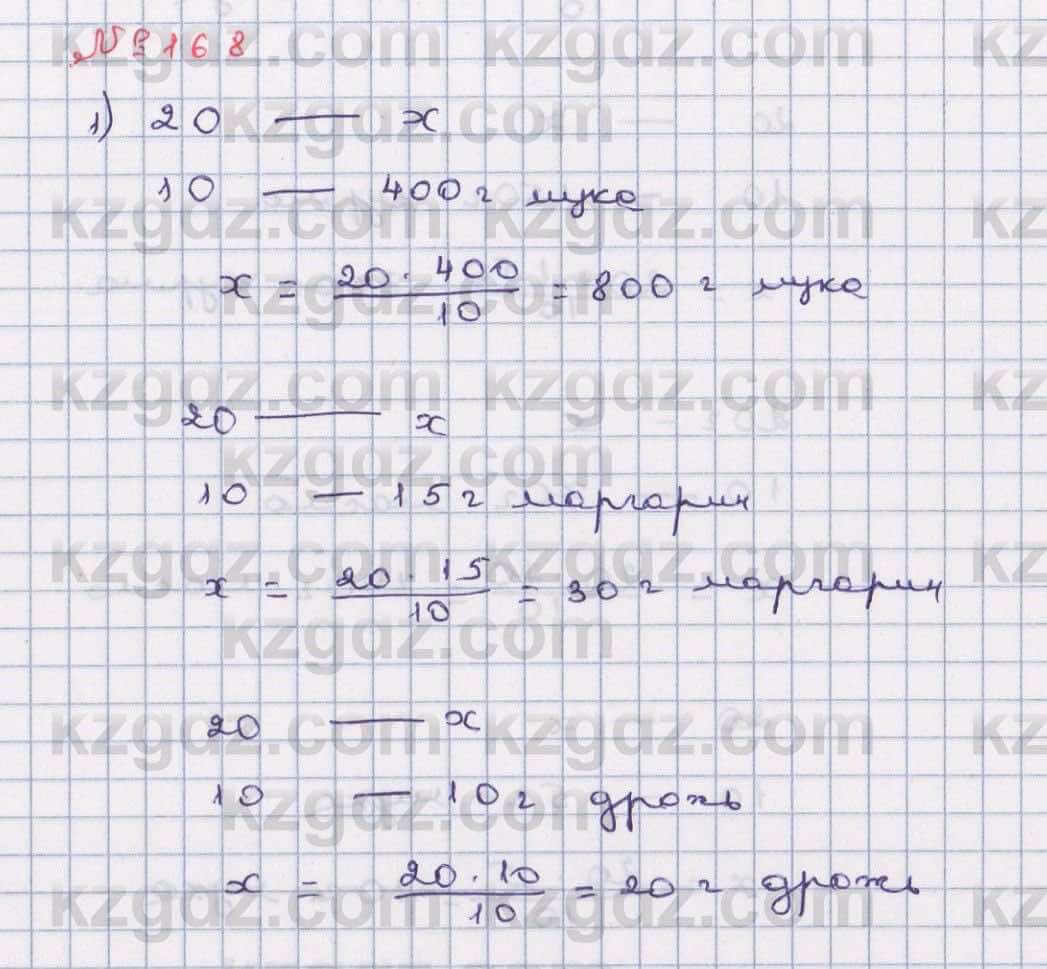 № 168
1) 20 — x
10 — 400 г мука
x = 20 · 400 / 10 = 800 г мука
20 — x
10 — 15 г маргарин
x = 20 · 15 / 10 = 30 г маргарин
20 — x
10 — 10 г дрожь
x = 20 · 10 / 10 = 20 г дрожь
kzgdz.com